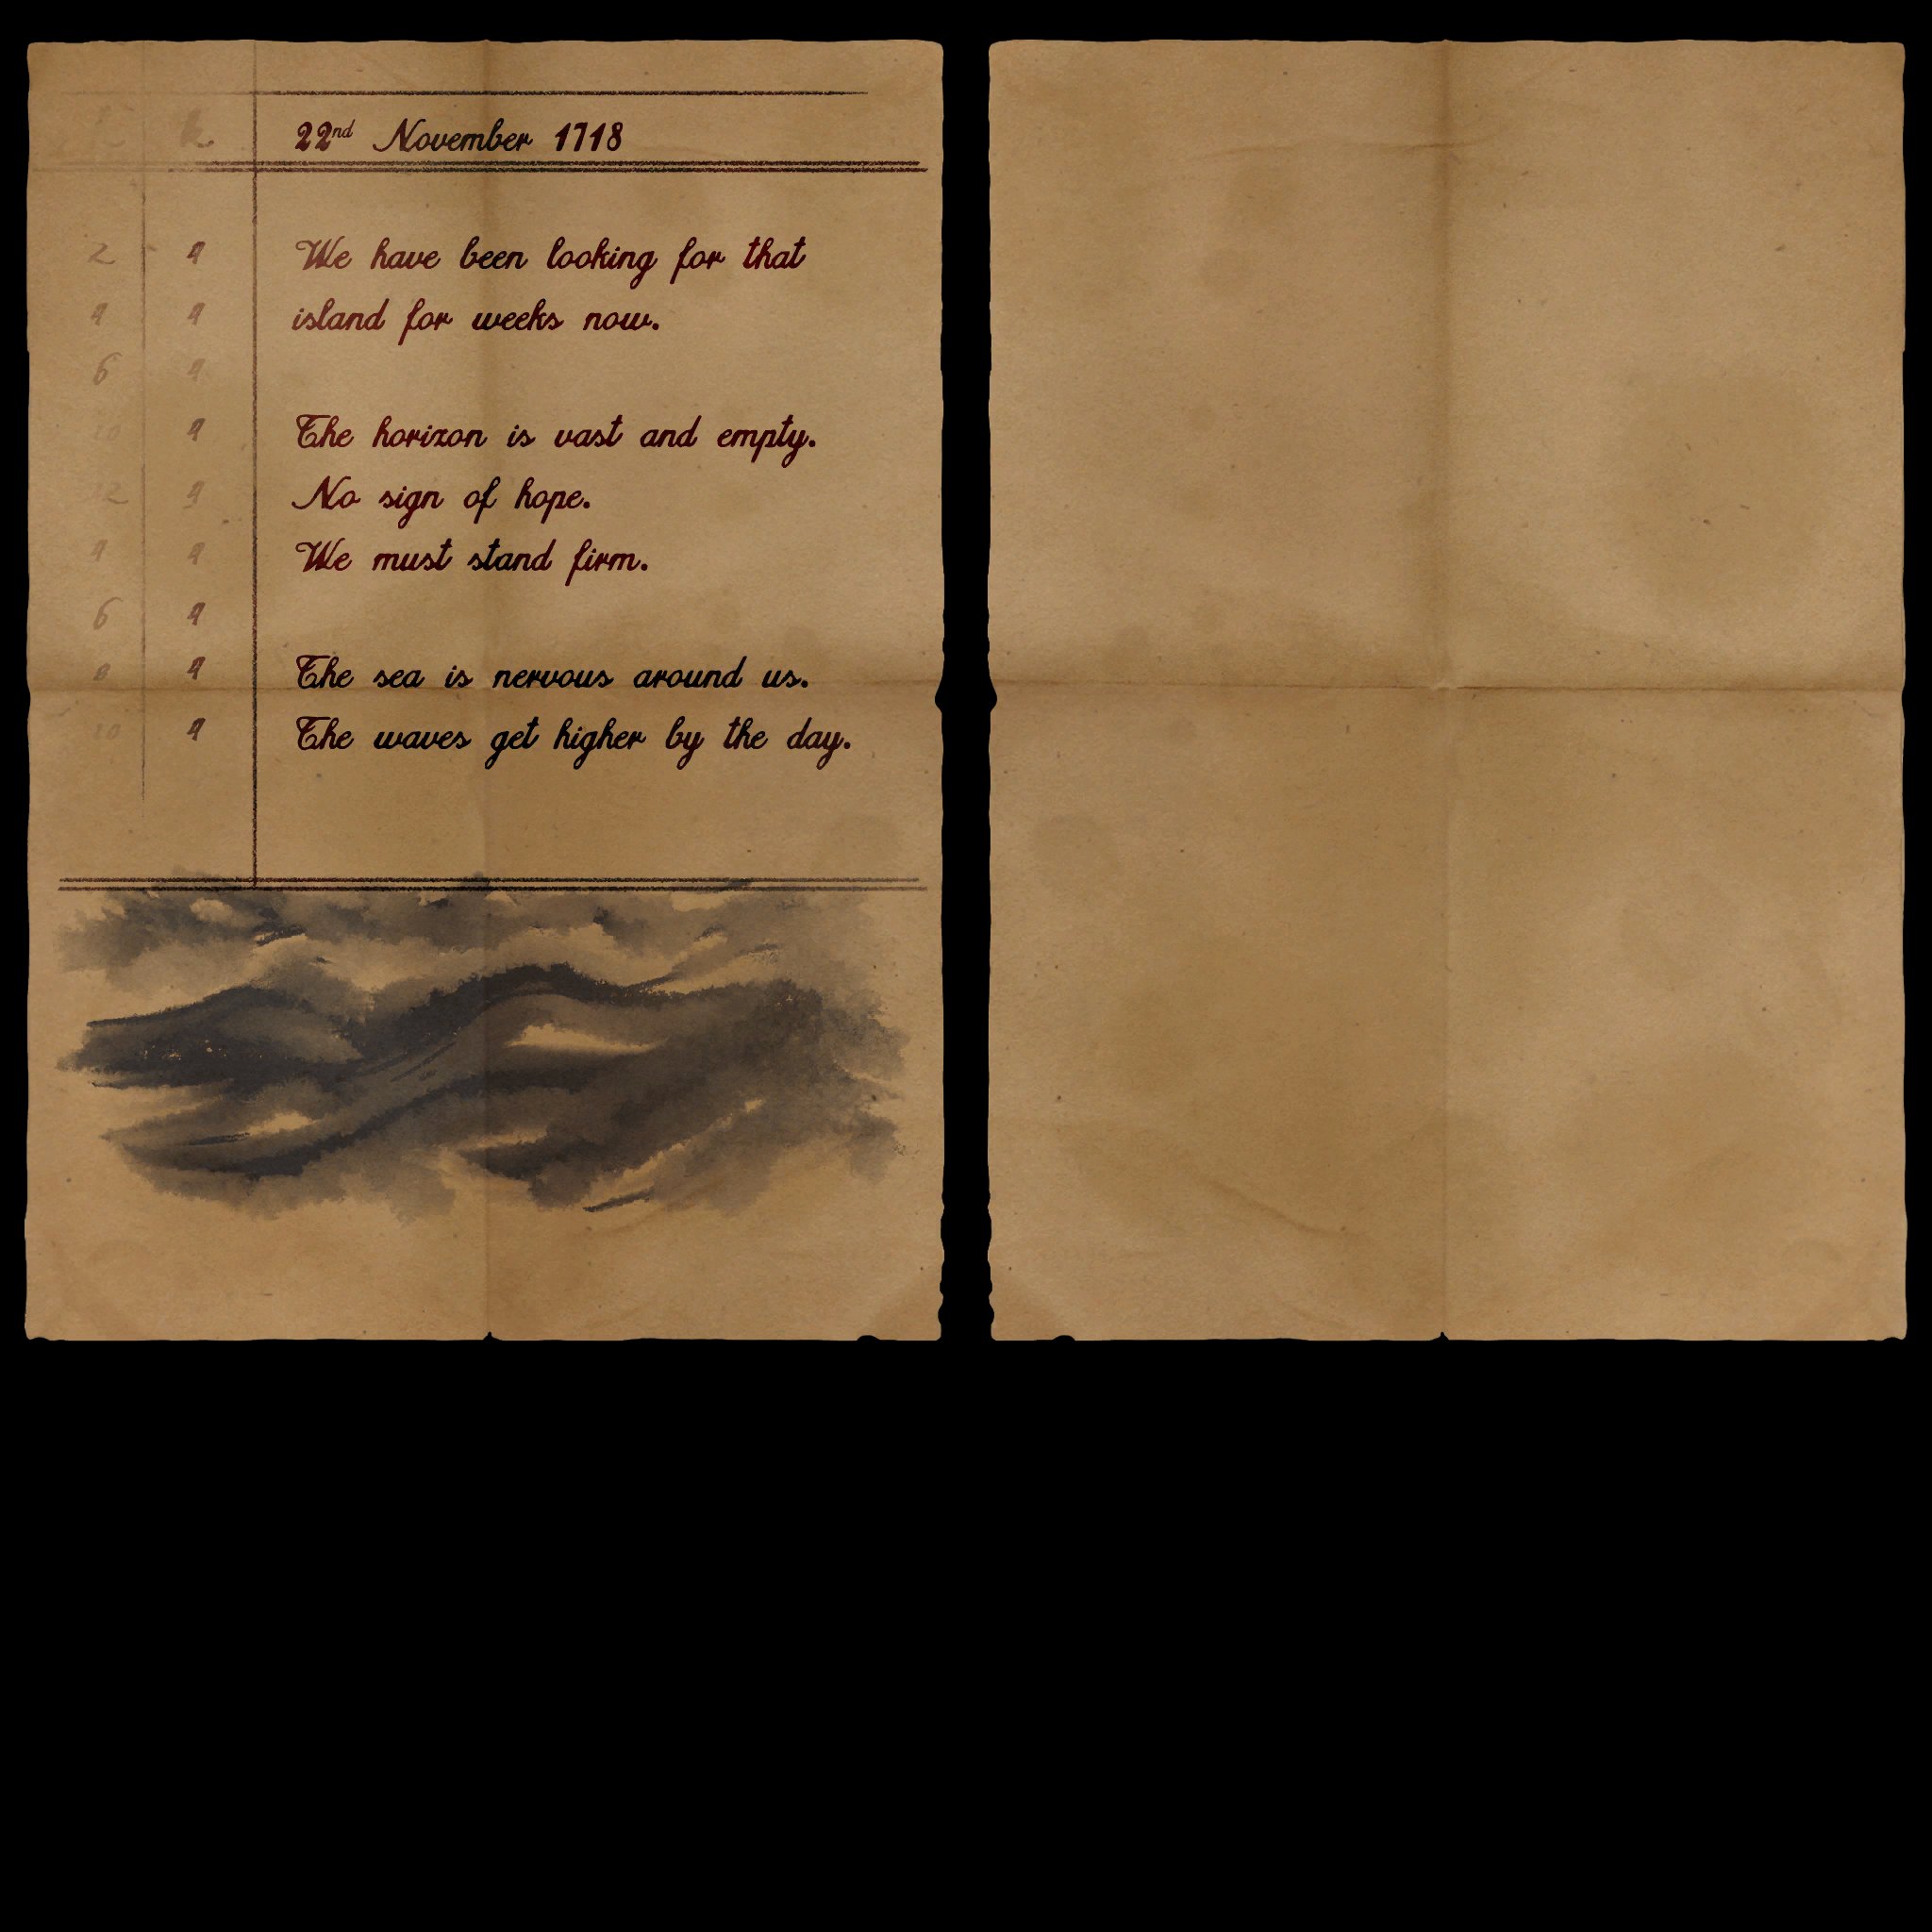 k
22nd November 1718
2 4 We have been looking for that
4 4 island for weeks now.
6 4
10 4 The horizon is vast and empty.
12 4 No sign of hope.
4 4 We must stand firm.
6 4
8 4 The sea is nervous around us.
10 4 The waves get higher by the day.